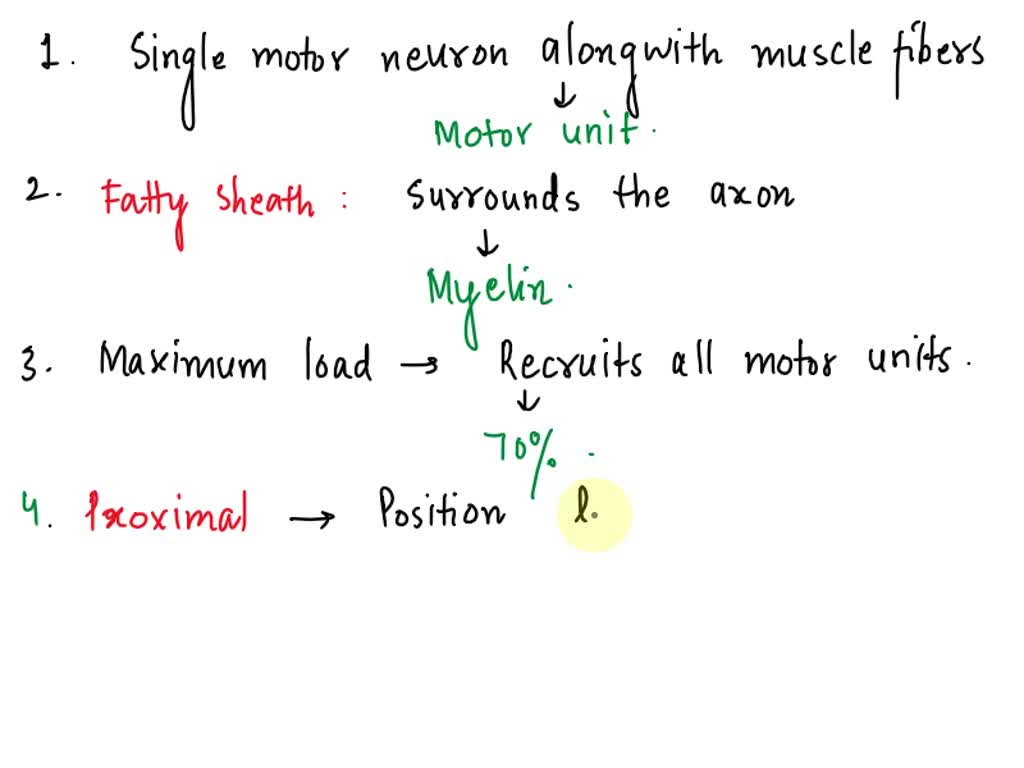 1. Single motor neuron alongwith muscle fibers
↓
Motor unit.
2. Fatty sheath : surrounds the axon
↓
Myelin.
3. Maximum load → Recruits all motor units.
↓
70% .
4. Proximal → Position l.